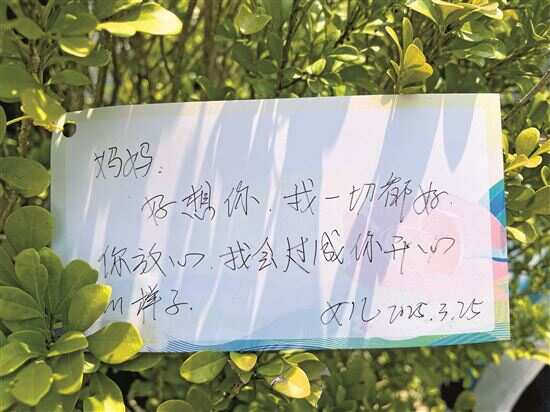 妈妈:
好想你,我一切都好.
你放心,我会过成你开心
的样子.
女儿 2025.3.25